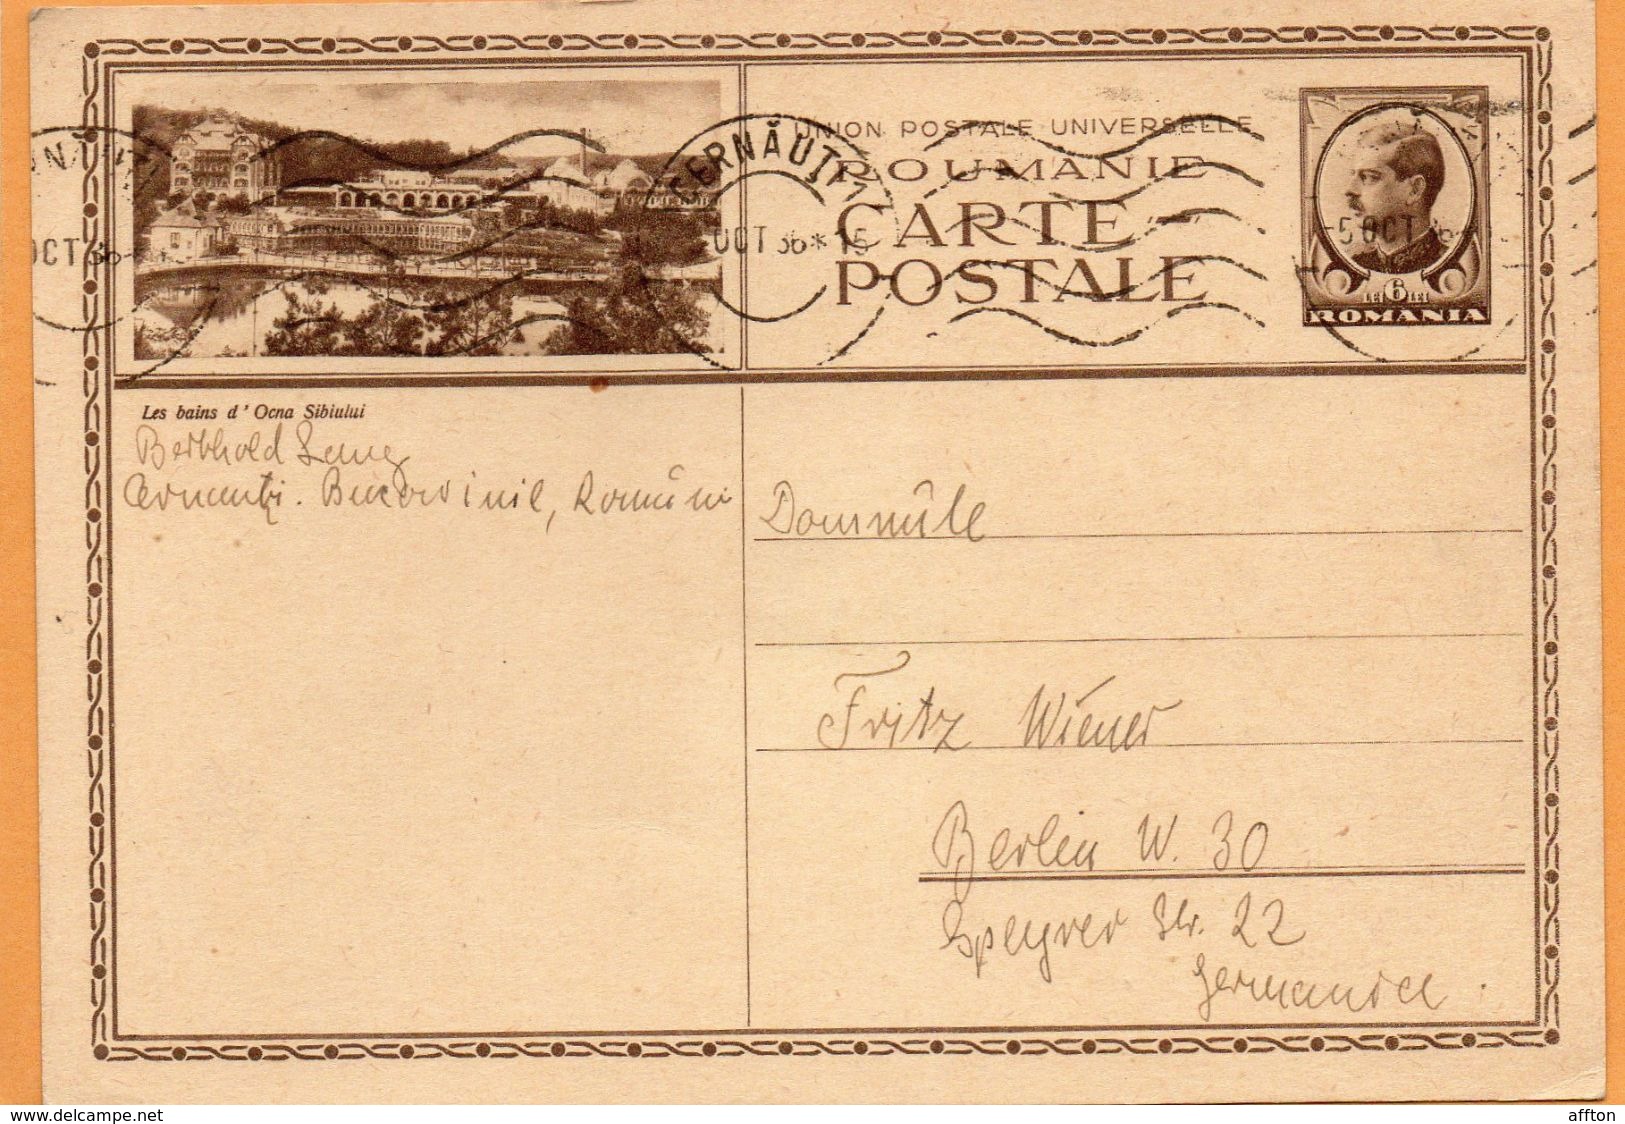 UNION POSTALE UNIVERSELLE
ROUMANIE
CARTE
POSTALE
CERNĂUȚI
OCT 36 * 15
5 OCT 36
LEI 6 LEI
ROMANIA
Les bains d' Ocna Sibiului
Berthold
Cernauți. România
Domnule
Fritz Wiener
Berlin W. 30
Speyrer Str. 22
Germania
www.delcampe.net
affton